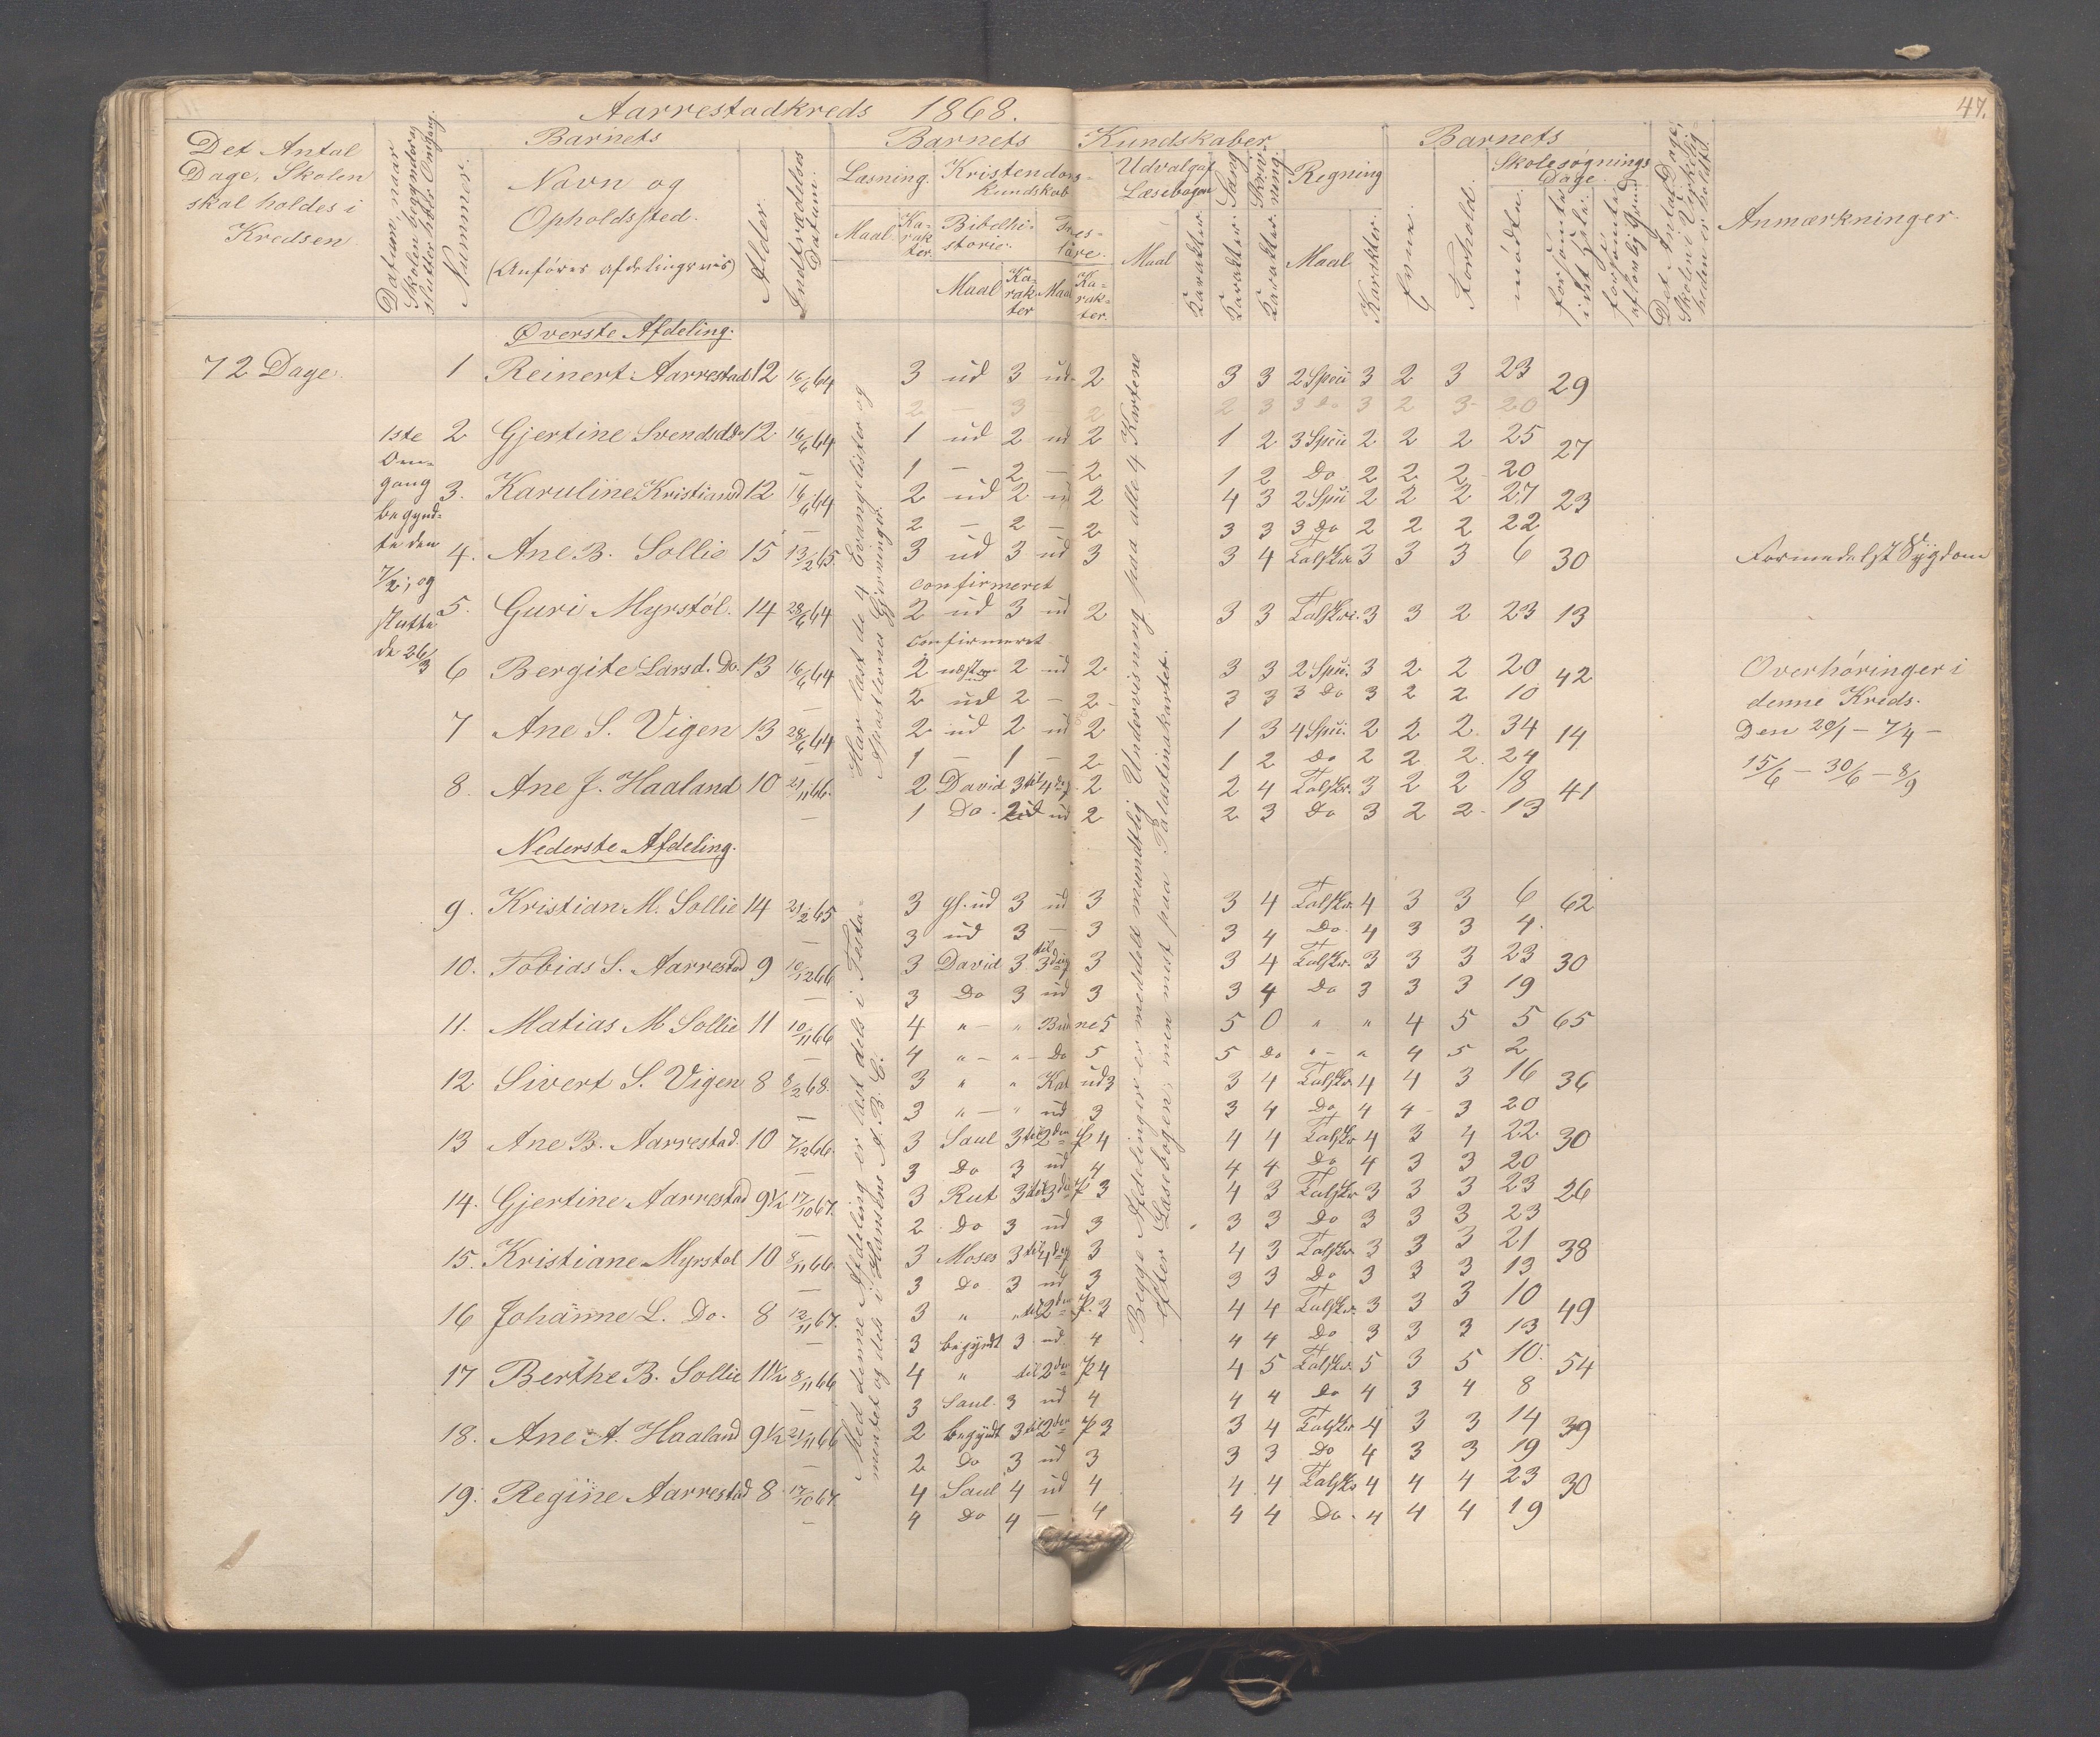 Aarrestadkreds 1868.
47.
Det Antal Dage, Skolen skal holdes i Kredsen
Datum, naar Skolen begynder og slutter hver Omgang.
Nummer.
Barnets
Navn og Opholdssted.
(Anföres afdelingsvis)
Alder.
Indtrædelses Datum.
Barnets Kundskaber
Læsning.
Maal
Ka-rak-ter.
Kristendoms-kundskab
Bibelhi-storie.
Maal
Ka-rak-ter
Troes-lære.
Maal
Ka-rak-ter.
Udvalg af Læsebogen
Maal
Karakter.
Sang
Karakter.
Skriv-ning.
Karakter
Regning
Maal
Karakter.
Barnets
Evne.
Forhold.
Skolesøgnings Dage
mödte.
forsömte i det Hele.
forsömte af lovlig Grund
Det Antal Dage, Skolen i Virkelig-heden er holdt.
Anmærkninger
Øverste Afdeling.
72 Dage.
1 Reinert Aarrestad 12 16/6 64 3 ud 3 ud 2 3 3 2 Speci 3 2 3 23 29
2 — 3 2 2 3 3 Do 3 2 3 20
1ste Om-gang begynd-te den 7/2, og sluttede 26/3
2 Gjertine Svendsd. Do 12 16/6 64 1 ud 2 ud 2 1 2 3 Speci 2 2 2 25 27
1 — 2 — 2 1 2 Do 2 2 2 20
3. Karuline Kristiansd 12 16/6 64 2 ud 2 ud 2 4 3 2 Speci 2 2 2 27 23
2 — 2 — 2 3 3 3 Do 2 2 2 22
4. Ane B. Sollie 15 13/2 65. 3 ud 3 ud 3 3 4 Talskr. 3 3 3 6 30 Formedelst Sygdom
confirmeret
5. Guri Myrstöl. 14 28/6 64 2 ud 3 ud 2 3 3 Talskr. 3 3 2 23 13
confirmeret
6 Bergite Larsd. Do. 13 16/6 64 2 næsten 2 ud 2 3 3 2 Speci. 3 2 2 20 42
2 ud 2 — 2 3 3 3 Do 3 2 2 10
7 Ane S. Vigen 13 28/6 64 2 ud 2 ud 2 1 3 4 Speci. 2 2 2 34 14
1 — 1 — 2 1 2 Do 2 2 2 24
8. Ane J. Haaland 10 21/11 66. 2 David 3 til 4de p. 2 2 4 Talskr. 3 2 2 18 41
1 Do. 2 ud ud 2 2 3 Do 3 2 2 13
Overhöringer i
denne Kreds.
Den 20/1 — 7/4 —
15/6 — 30/6 — 8/9
Har læst de 4 Evangelister og
Apostlernes Gjerninger.
Nederste Afdeling.
9. Kristian M. Sollie 14 21/2 65 3 gl. ud 3 ud 3 3 4 Talskr. 4 3 3 6 62
3 ud 3 — 3 3 4 Do 4 3 3 4
10. Tobias S. Aarrestad 9 10/12 66 3 David 3 til 3die p 3 3 4 Talskr. 3 3 3 23 30
3 Do 3 ud 3 3 4 Do 3 3 3 19
11. Matias M Sollie 11 10/11 66 4 „ — „ 5 5 0 „ „ 4 5 5 65
4 „ — „ — Do 5 5 Do „ — „ 4 5 2
12 Sivert S. Vigen 8 8/2 68. 3 „ „ Kat ud 3 3 4 Talskr. 4 4 3 16 36
3 „ — „ ud 3 3 4 Do 4 4 3 20
13 Ane B. Aarrestad. 10 7/12 66. 3 Saul 3 til 2den P 4 4 4 Talskr 4 3 4 22 30
3 Do 3 ud 4 4 4 Do 4 3 3 20
14. Gjertine Aarrestad 9½ 17/10 67. 3 Rut 3 til 3die P 3 4 3 Talskr 3 3 3 23 26
2 Do 3 ud 3 3 3 Do 3 3 3 23
15. Kristiane Myrstol 10 8/11 66. 3 Moses 3 til 4de p 3 4 3 Talskr. 3 3 3 21 38
3 Do 3 ud 3 3 3 Do 3 3 3 13
16 Johanne L. Do. 8 12/11 67. 3 „ „ til 2den P. 3 4 4 Talskr. 3 3 3 10 49
3 begyndt 3 ud. 4 4 4 Do 3 3 3 13
17 Berthe B. Sollie 11½ 8/11 66 4 „ til 2den P 4 4 5 Talskr. 5 3 5 10 54
3 Saul. 3 ud 4 4 4 Do 4 3 4 8
18. Ane A. Haaland 9½ 21/11 66 2 begyndt 3 til 2den P 3 3 4 Talskr 4 3 3 14 39
2 Do 3 ud 3 3 3 Do 4 3 3 19
19. Regine Aarrestad 8 17/10 67. 4 Saul 4 ud 4 4 4 Talskr 4 4 4 23 30
4 Do 4 — 4 4 4 Do. 4 4 4 19
Med denne Afdeling er læst dels i Testa-
mentet og dels i Hansens A. B. C.
Begge Afdelinger er meddelt mundtlig Undervisning paa alle 4 Kartene
efter Læsebogen; men mest paa Palæstinakartet.